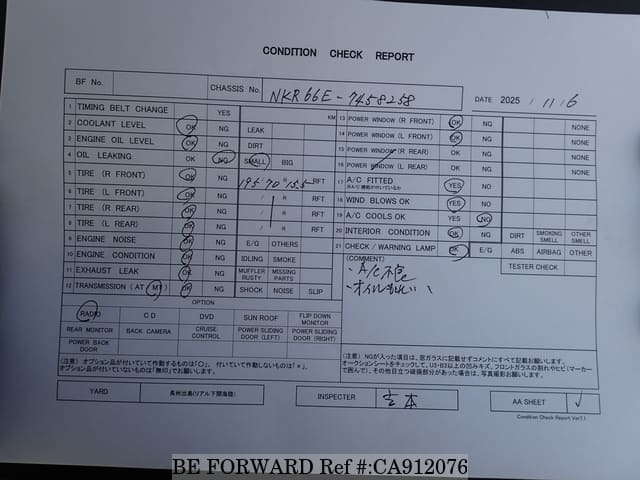 CONDITION CHECK REPORT
BF No.
CHASSIS No. NKR66E-7458258
DATE 2025 / 11 / 6
1 TIMING BELT CHANGE YES KM
2 COOLANT LEVEL OK NG LEAK
3 ENGINE OIL LEVEL OK NG DIRT
4 OIL LEAKING OK NG SMALL BIG
5 TIRE (R FRONT) OK NG 195/70 R 15.5 RFT
6 TIRE (L FRONT) OK NG / R RFT
7 TIRE (R REAR) OK NG / R RFT
8 TIRE (L REAR) OK NG / R RFT
9 ENGINE NOISE OK NG E/G OTHERS
10 ENGINE CONDITION OK NG IDLING SMOKE
11 EXHAUST LEAK OK NG MUFFLER RUSTY MISSING PARTS
12 TRANSMISSION (AT MT) OK NG SHOCK NOISE SLIP
13 POWER WINDOW (R FRONT) OK NG NONE
14 POWER WINDOW (L FRONT) OK NG NONE
15 POWER WINDOW (R REAR) OK NG NONE
16 POWER WINDOW (L REAR) OK NG NONE
17 A/C FITTED YES NO
18 WIND BLOWS OK YES NO
19 A/C COOLS OK YES NO
20 INTERIOR CONDITION OK NG DIRT SMOKING SMELL OTHER SMELL
21 CHECK / WARNING LAMP OK E/G ABS AIRBAG OTHER
TESTER CHECK
(COMMENT)
・A/C不良
・オイルもれ
OPTION
RADIO CD DVD SUN ROOF FLIP DOWN MONITOR
REAR MONITOR BACK CAMERA CRUISE CONTROL POWER SLIDING DOOR (LEFT) POWER SLIDING DOOR (RIGHT)
POWER BACK DOOR
(注意) オプション品が付いていて作動するものは「○」、付いていて作動しないものは「×」、
オプション品が付いていないものは「無印」でお願いします。
(注意) NGが入った項目は、窓ガラスに記載せずコメントにすべて記載お願いします。
オークションシートをチェックして、U3・B3以上の凹みキズ、フロントガラスの割れやヒビ(マーカー
で囲んで)、その他目立つ破損部分があった場合は、写真撮影お願いします。
YARD 長州出島(リアル下関海陸)
INSPECTER 吉本
AA SHEET ✓
Condition Check Report Ver7.1
BE FORWARD Ref #:CA912076